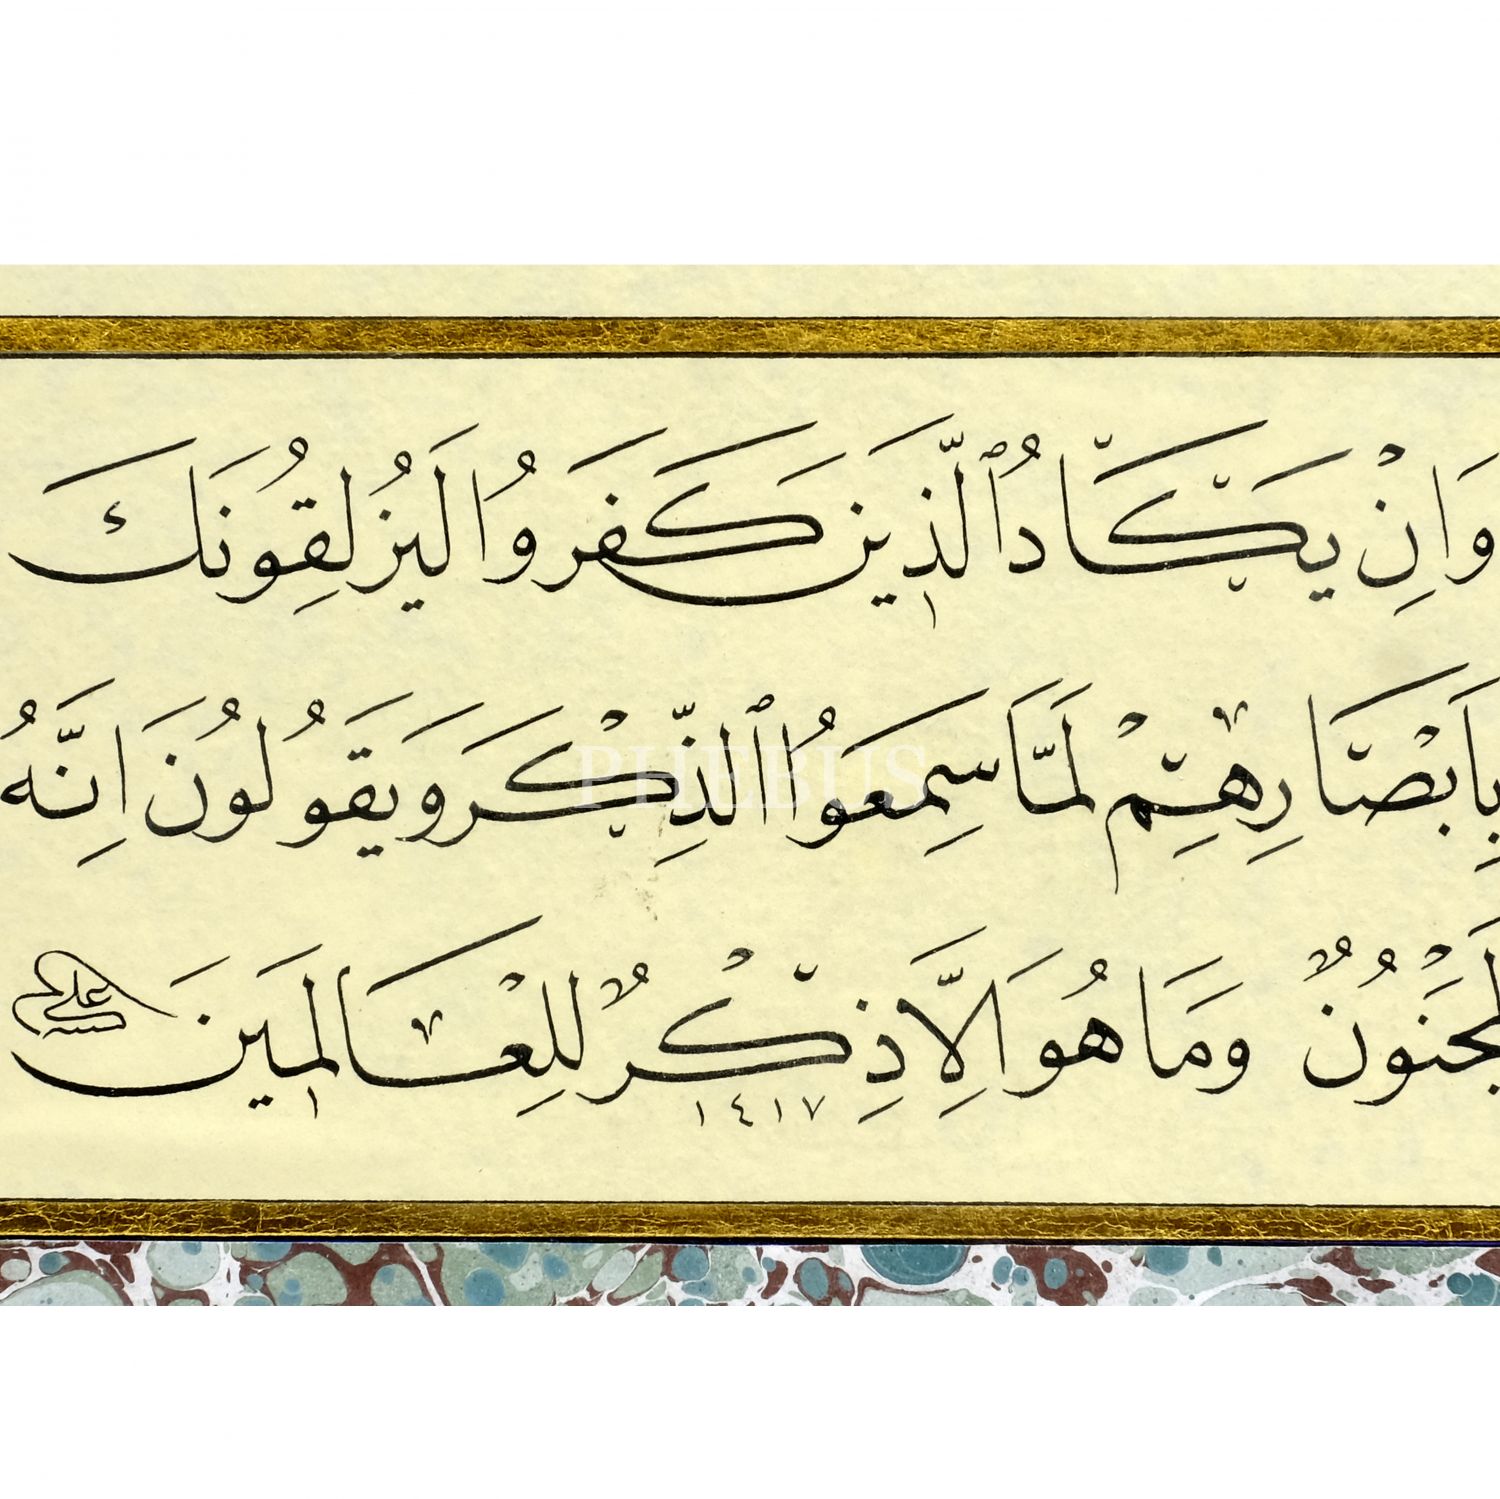 وَاِنْ يَكَادُ ٱلَّذِينَ كَفَرُوا لَيُزْلِقُونَكَ
بِاَبْصَارِهِمْ لَمَّا سَمِعُوا ٱلذِّكْرَ وَيَقُولُونَ اِنَّهُ
PHEBUS
لَمَجْنُونٌ وَمَا هُوَ اِلَّا ذِكْرٌ لِلْعَالَمِينَ
علي
١٤١٧